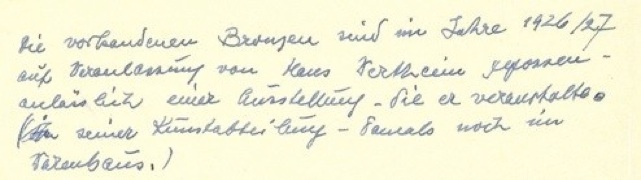 die vorhandenen Bronzen sind im Jahre 1926/27
auf Veranlassung von Hans Wertheim gegossen -
anlässlich einer Ausstellung - die er veranstaltete.
(in seiner Kunstabteilung - damals noch im
Warenhaus.)